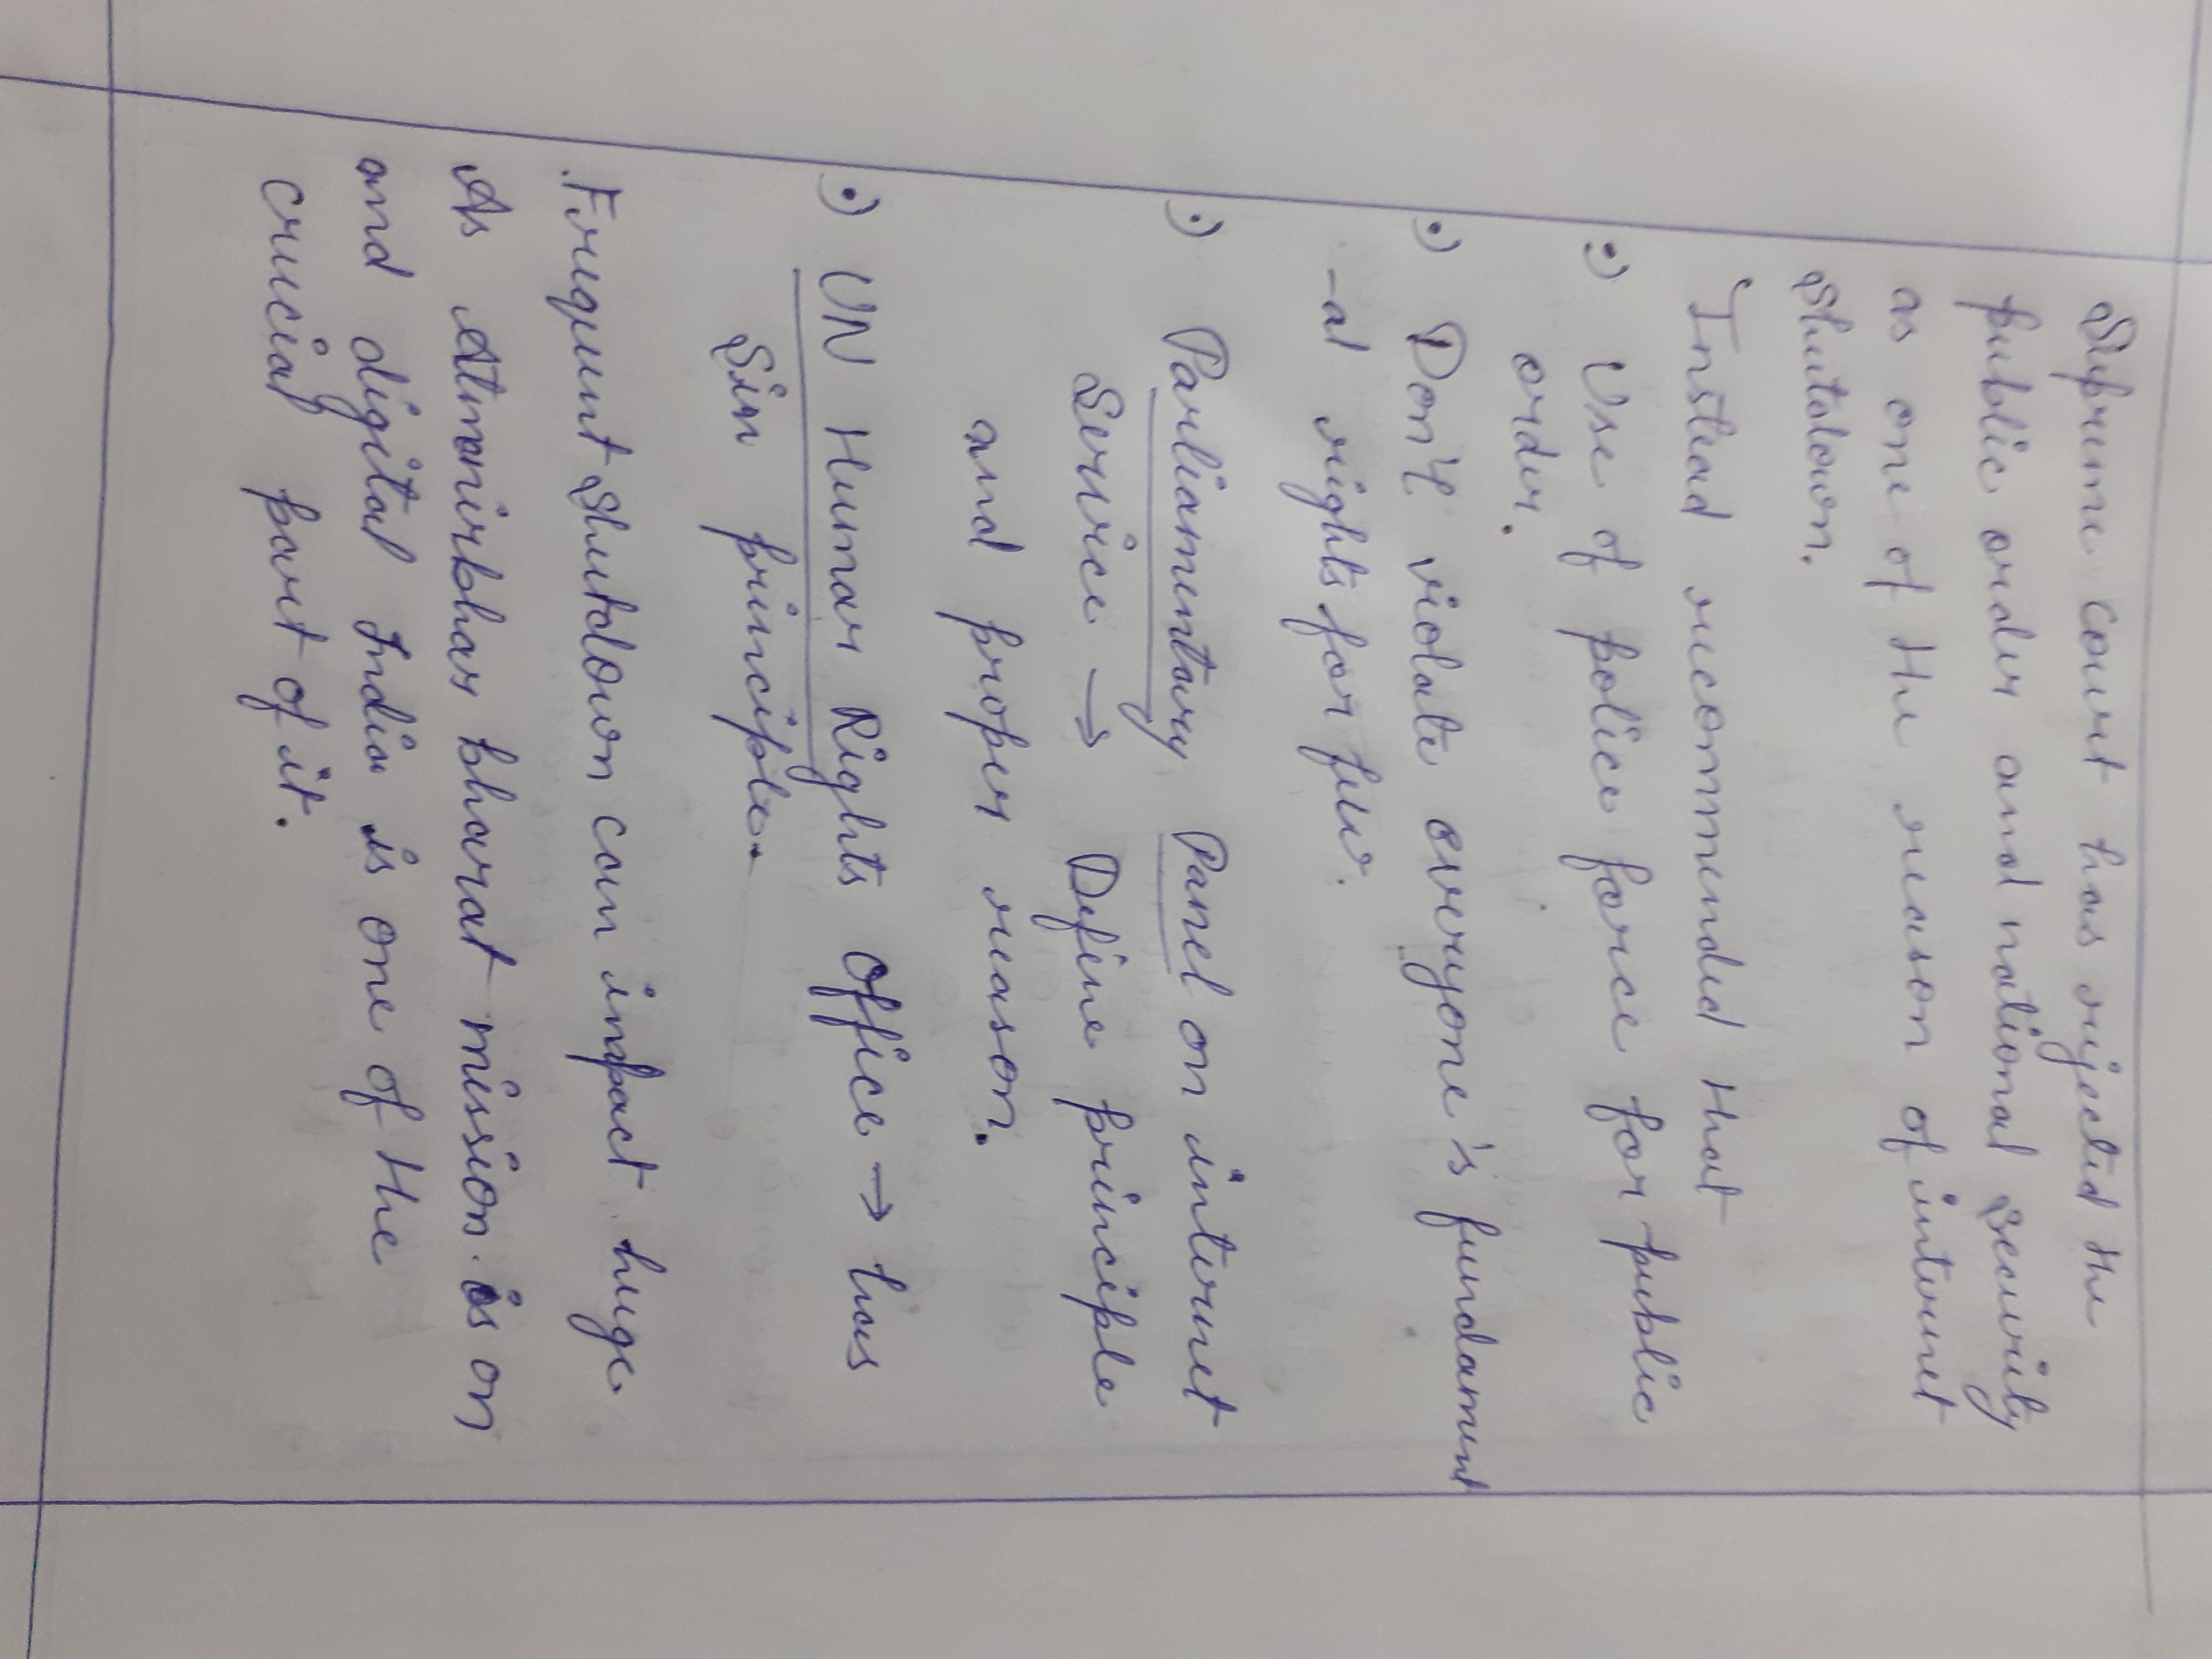 Supreme court has rejected the
public order and national security
as one of the reason of internet
Shutdown.
Instead recommended that
•) Use of police force for public
order.
•) Don't violate everyone's fundament
-al rights for few.
•) Parliamentary Panel on internet
Service → Define principle
and proper reason.
•) UN Human Rights Office → has
Six principle.
.Frequent Shutdown can impact huge
As Atmanirbhar bharat mission is on
and digital India is one of the
crucial part of it.